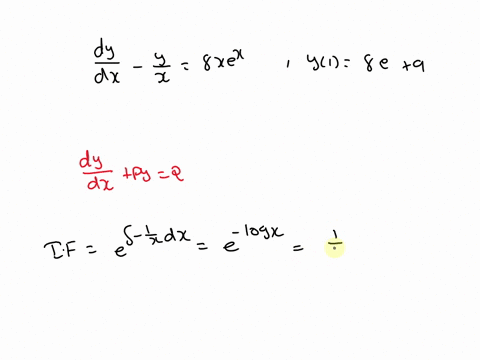 dy/dx - y/x = 8xe^x , y(1) = 8e + 9
dy/dx + Py = Q
I.F = e^∫-1/x dx = e^-logx = 1/